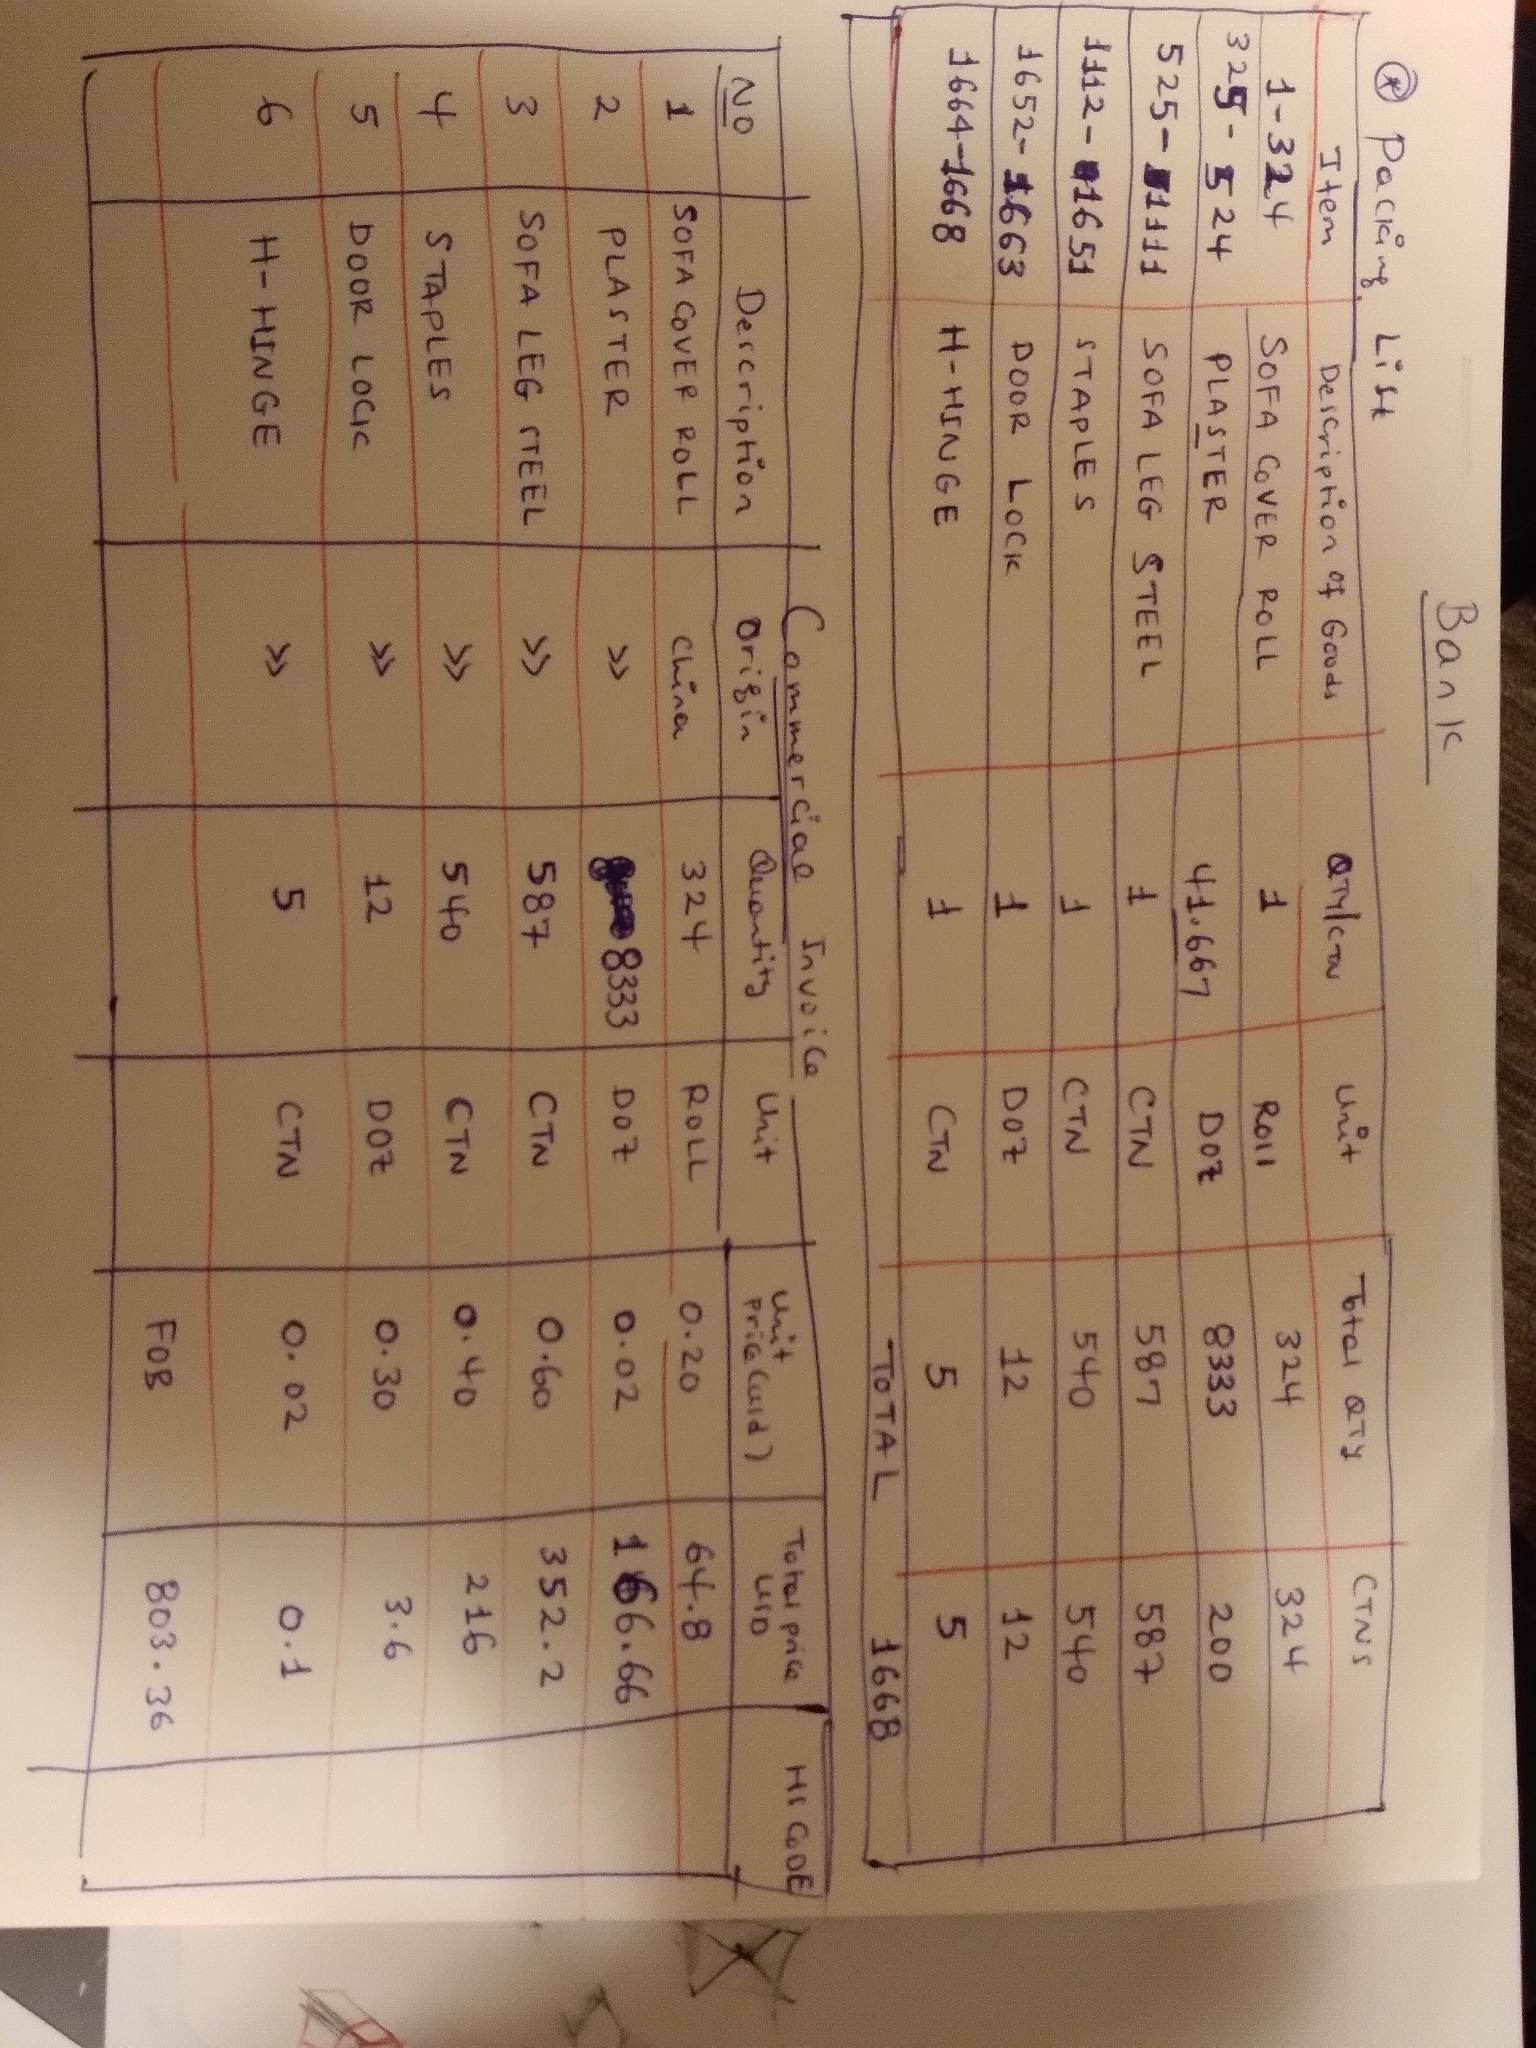 Bank
* Packing List
Item Description of Goods QTY/CTN Unit Total QTY CTNS
1-324 SOFA COVER ROLL 1 Roll 324 324
325-524 PLASTER 41.667 DOZ 8333 200
525-1111 SOFA LEG STEEL 1 CTN 587 587
1112-1651 STAPLES 1 CTN 540 540
1652-1663 DOOR LOCK 1 DOZ 12 12
1664-1668 H-HINGE 1 CTN 5 5
TOTAL 1668
Commercial Invoice
NO Description Origin Quantity Unit Unit price (usd) Total price USD HS CODE
1 SOFA COVER ROLL China 324 ROLL 0.20 64.8
2 PLASTER >> 8333 DOZ 0.02 166.66
3 SOFA LEG STEEL >> 587 CTN 0.60 352.2
4 STAPLES >> 540 CTN 0.40 216
5 DOOR LOCK >> 12 DOZ 0.30 3.6
6 H-HINGE >> 5 CTN 0.02 0.1
FOB 803.36